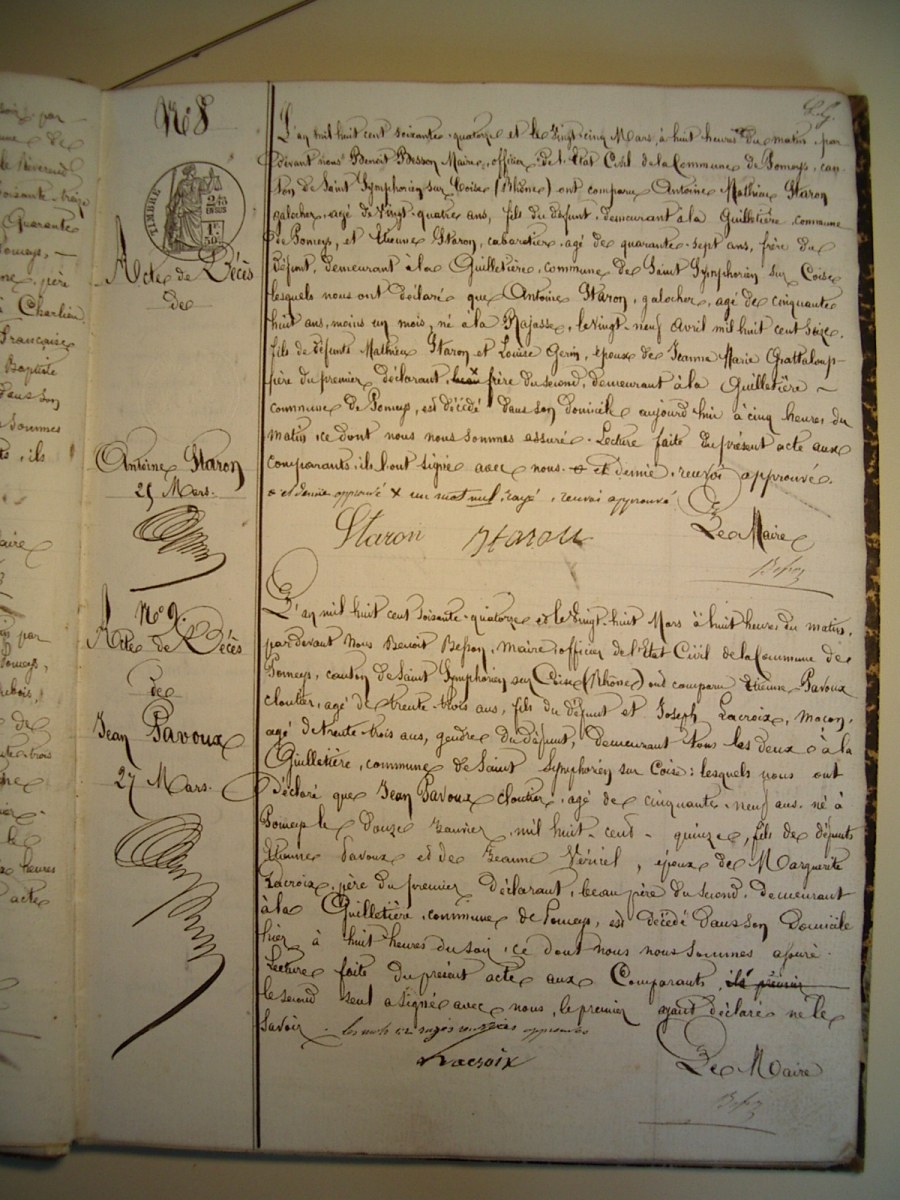 N° 8
TIMBRE
Acte de Décès
de
Antoine Staron
25 Mars.
L'an mil huit cent soixante-quatorze et le vingt-cinq Mars, à huit heures du matin, par
devant nous Benoit Besson Maire, officier de l'Etat Civil de la Commune de Pomeys, can-
ton de Saint Symphorien sur Coise (Rhône) ont comparu Antoine Mathieu Staron
galocher, agé de vingt-quatre ans, fils du défunt, demeurant à la Guilletière commune
de Pomeys, et Etienne Staron, cabaretier, agé de quarante-sept ans, frère du
défunt, demeurant à la Guilletière, commune de Saint Symphorien sur Coise,
lesquels nous ont déclaré que Antoine Staron, galocher, agé de cinquante
huit ans, moins un mois, né à la Rajasse, le vingt-neuf Avril mil huit cent seize,
fils de défunts Mathieu Staron et Louise Gerin, époux de Jeanne Marie Grattaloup
père du premier déclarant, frère du second, demeurant à la Guilletière
commune de Pomeys, est décédé dans son domicile aujourd'hui à cinq heures du
matin, ce dont nous nous sommes assuré. Lecture faite du présent acte aux
comparants, ils l'ont signé avec nous. et dernier renvoi approuvé.
approuvé x un mot nul rayé, renvoi approuvé
Staron Staron
Le Maire
N° 9.
Acte de Décès
de
Jean Pavoux
27 Mars.
L'an mil huit cent soixante-quatorze et le vingt-huit Mars à huit heures du matin,
pardevant Nous Benoit Besson, Maire, officier de l'Etat Civil de la Commune de
Pomeys, canton de Saint Symphorien sur Coise (Rhône) ont comparu Etienne Pavoux
cloutier, agé de trente-trois ans, fils du défunt et Joseph Lacroix, maçon,
agé de trente-trois ans, gendre du défunt, demeurant tous les deux à la
Guilletière, commune de Saint Symphorien sur Coise: lesquels nous ont
déclaré que Jean Pavoux cloutier, agé de cinquante-neuf ans, né à
Pomeys le douze Janvier, mil huit-cent-quinze, fils de défunts
Etienne Pavoux et de Jeanne Vériel, époux de Marguerite
Lacroix, père du premier déclarant, beau père du second, demeurant
à la Guilletière, commune de Pomeys, est décédé dans son domicile
hier à huit heures du soir, ce dont nous nous sommes assuré.
Lecture faite du présent acte aux Comparants,
le second seul a signé avec nous, le premier ayant déclaré ne le
savoir. approuvés
Lacroix
Le Maire